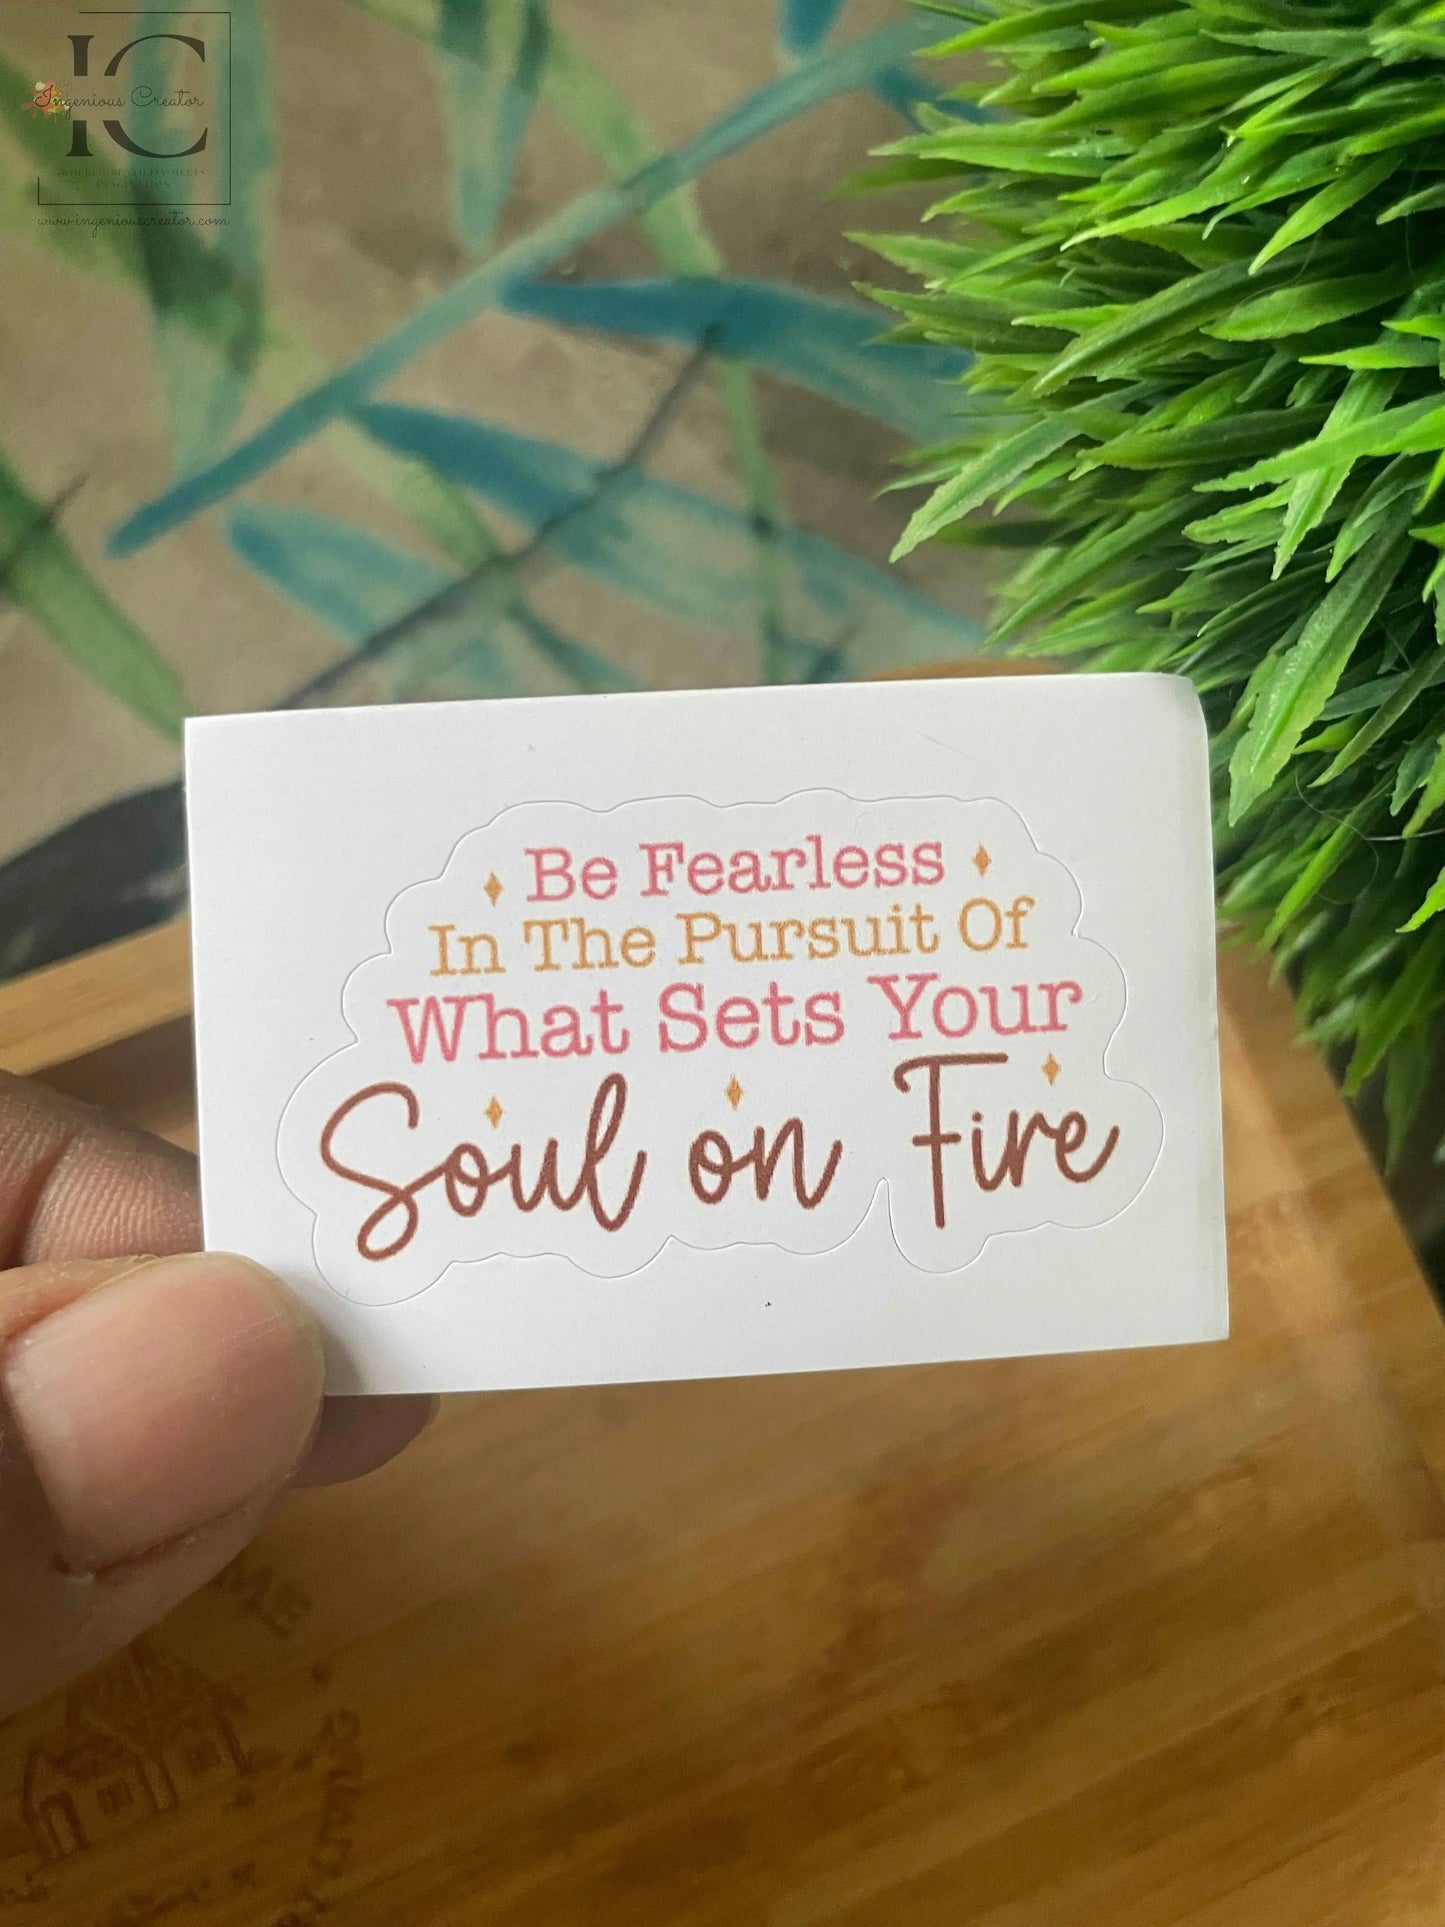 IC
Ingenious Creator
WHERE CREATIVITY MEETS
IMAGINATION
www.ingeniouscreator.com
Be Fearless
In The Pursuit Of
What Sets Your
Soul on Fire